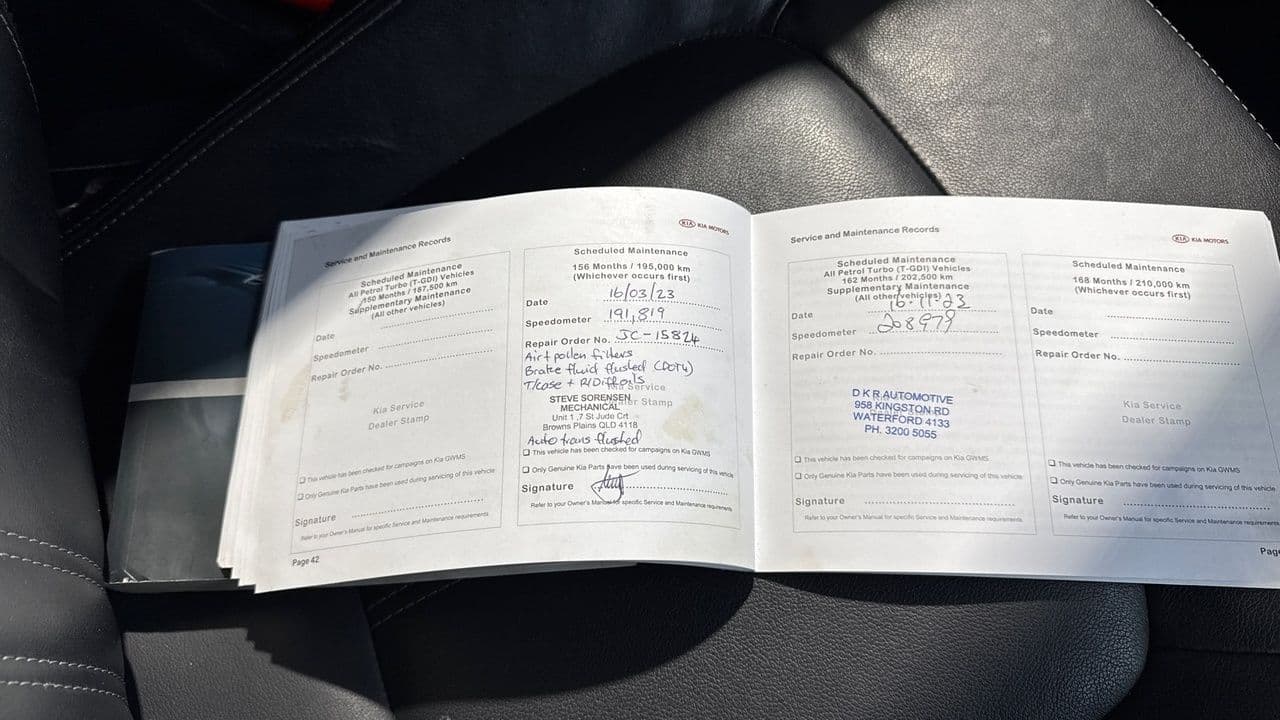 Service and Maintenance Records
Scheduled Maintenance
All Petrol Turbo (T-GDI) Vehicles
150 Months / 187,500 km
Supplementary Maintenance
(All other vehicles)
Date
Speedometer
Repair Order No.
Kia Service
Dealer Stamp
❑ This vehicle has been checked for campaigns on Kia GWMS
❑ Only Genuine Kia Parts have been used during servicing of this vehicle
Signature
Refer to your Owner's Manual for specific Service and Maintenance requirements.
Page 42
KIA KIA MOTORS
Scheduled Maintenance
156 Months / 195,000 km
(Whichever occurs first)
Date 16/03/23
Speedometer 191,819
Repair Order No. JC-15824
Air + pollen filters
Brake fluid flushed (DOT4)
T/case + R/Diff oils
Kia Service
STEVE SORENSEN
MECHANICAL
Dealer Stamp
Unit 1 ,7 St Jude Crt
Browns Plains QLD 4118
Auto trans flushed
❑ This vehicle has been checked for campaigns on Kia GWMS
❑ Only Genuine Kia Parts have been used during servicing of this vehicle
Signature
Refer to your Owner's Manual for specific Service and Maintenance requirements
Service and Maintenance Records
Scheduled Maintenance
All Petrol Turbo (T-GDI) Vehicles
162 Months / 202,500 km
Supplementary Maintenance
(All other vehicles)
Date 16-11-23
Speedometer 208979
Repair Order No.
D K R AUTOMOTIVE
958 KINGSTON RD
WATERFORD 4133
PH. 3200 5055
❑ This vehicle has been checked for campaigns on Kia GWMS
❑ Only Genuine Kia Parts have been used during servicing of this vehicle
Signature
Refer to your Owner's Manual for specific Service and Maintenance requirements.
KIA KIA MOTORS
Scheduled Maintenance
168 Months / 210,000 km
(Whichever occurs first)
Date
Speedometer
Repair Order No.
Kia Service
Dealer Stamp
❑ This vehicle has been checked for campaigns on Kia GWMS
❑ Only Genuine Kia Parts have been used during servicing of this vehicle
Signature
Refer to your Owner's Manual for specific Service and Maintenance requirements
Page